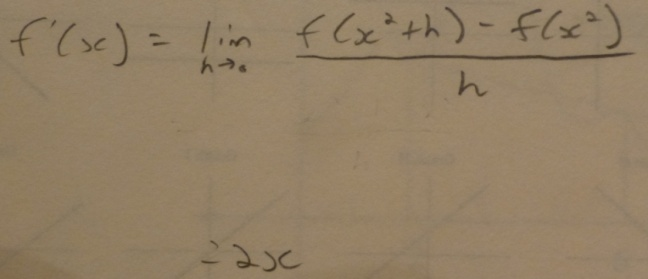 f'(x) = lim h→0 f(x²+h) - f(x²) / h
= 2x